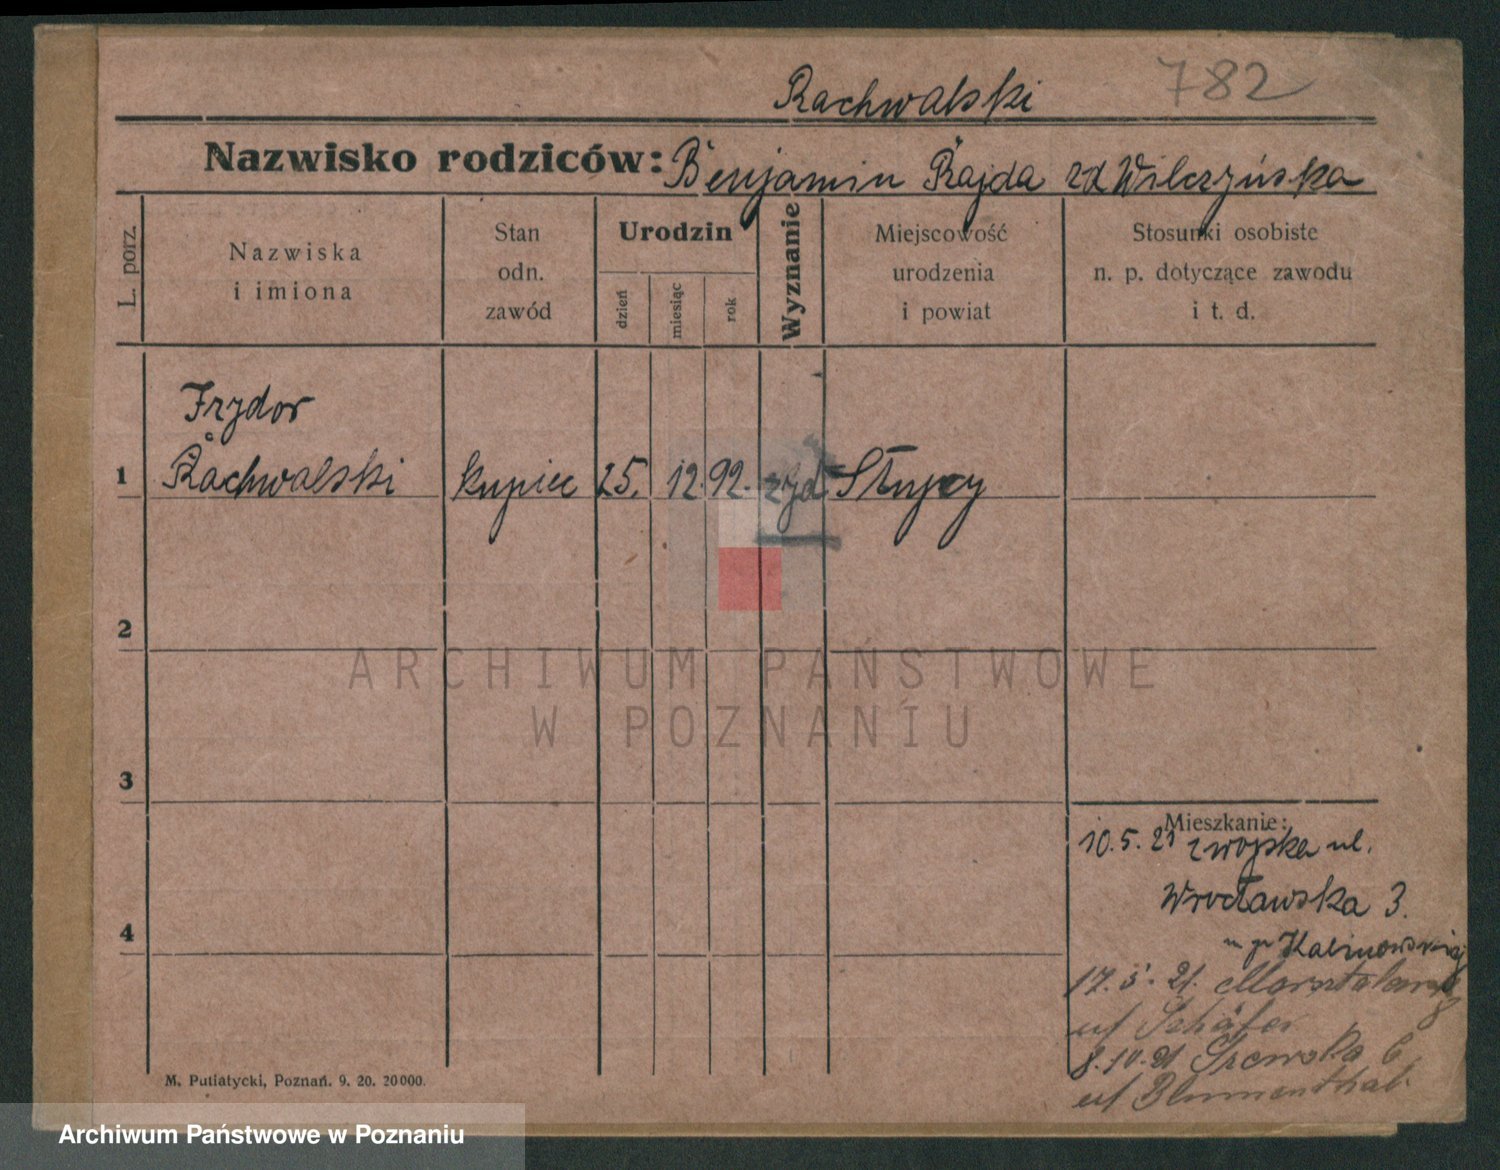 Rachwalski 782
Nazwisko rodziców: Benjamin Rajda zd Wilczyńska
L. porz.
Nazwiska
i imiona
Stan
odn.
zawód
Urodzin
dzień
miesiąc
rok
Wyznanie
Miejscowość
urodzenia
i powiat
Stosunki osobiste
n. p. dotyczące zawodu
i t. d.
Izydor
1 Rachwalski kupiec 25. 12. 92. żyd Słupcy
2
3
4
Mieszkanie:
10.5.21 z wojska ul.
Wrocławska 3.
Kalinowskiej
17.5.21. Masztalarska 8
u/ Schäfer
8.10.21 Szewska 6
u/ Blumenthal.
M. Putiatycki, Poznań. 9. 20. 20000.
ARCHIWUM PAŃSTWOWE
W POZNANIU
Archiwum Państwowe w Poznaniu